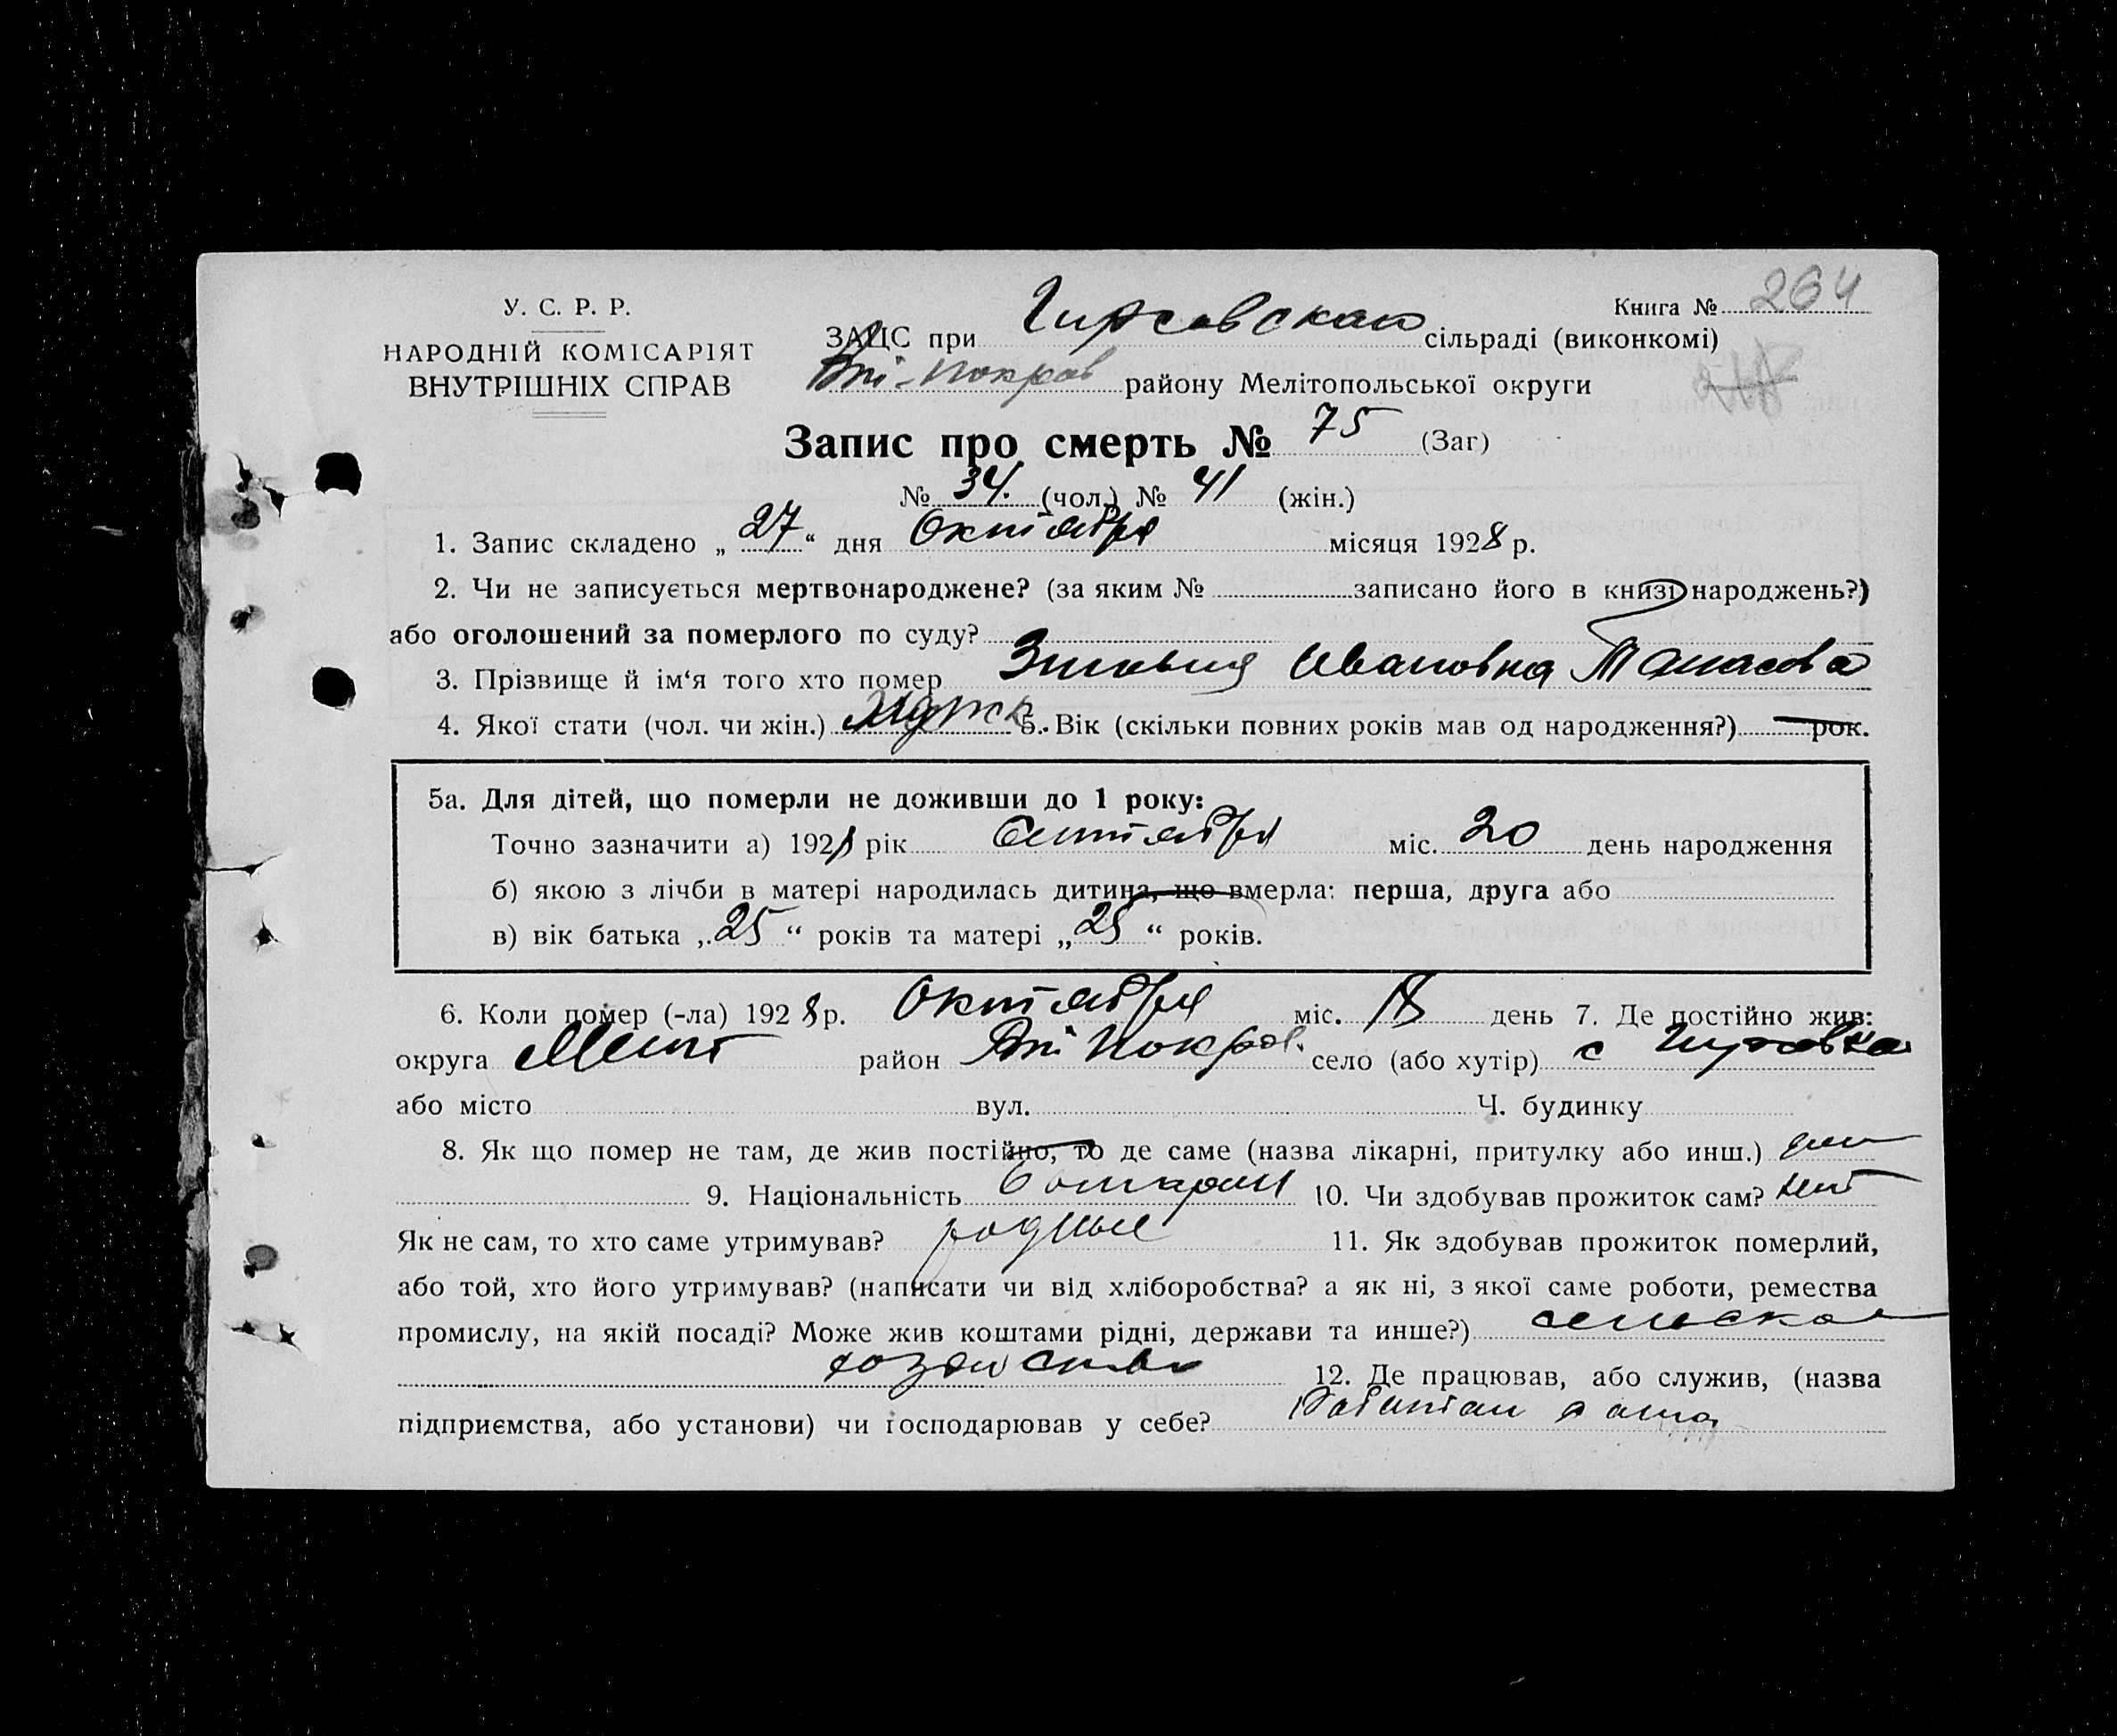 У. С. Р. Р.
НАРОДНІЙ КОМІСАРІЯТ
ВНУТРІШНІХ СПРАВ
Книга № 264
ЗАЦС при Гирсовскои сільраді (виконкомі)
Покров району Мелітопольської округи
Запис про смерть № 75 (Заг)
№ 34. (чол.) № 41 (жін.)
1. Запис складено „ 27 “ дня Октября місяця 1928 р.
2. Чи не записується мертвонароджене? (за яким № записано його в книзі народжень?)
або оголошений за померлого по суду?
3. Прізвище й ім‘я того хто помер Зиновия Ивановна Танасова
4. Якої стати (чол. чи жін.) 5. Вік (скільки повних років мав од народження?) рок.
5а. Для дітей, що померли не доживши до 1 року:
Точно зазначити а) 1928 рік Сентября міс. 20 день народження
б) якою з лічби в матері народилась дитина, що вмерла: перша, друга або
в) вік батька „ 25 “ років та матері „ 25 “ років.
6. Коли помер (-ла) 1928 р. Октября міс. день 7. Де постійно жив:
округа Мелит район Покров. село (або хутір) с Гирсовка
або місто вул. Ч. будинку
8. Як що помер не там, де жив постійно, то де саме (назва лікарні, притулку або инш.)
9. Національність болгари 10. Чи здобував прожиток сам? нет
Як не сам, то хто саме утримував? родные 11. Як здобував прожиток померлий,
або той, хто його утримував? (написати чи від хліборобства? а як ні, з якої саме роботи, ремества
промислу, на якій посаді? Може жив коштами рідні, держави та инше?) сельское
хозяйство 12. Де працював, або служив, (назва
підприємства, або установи) чи господарював у себе?